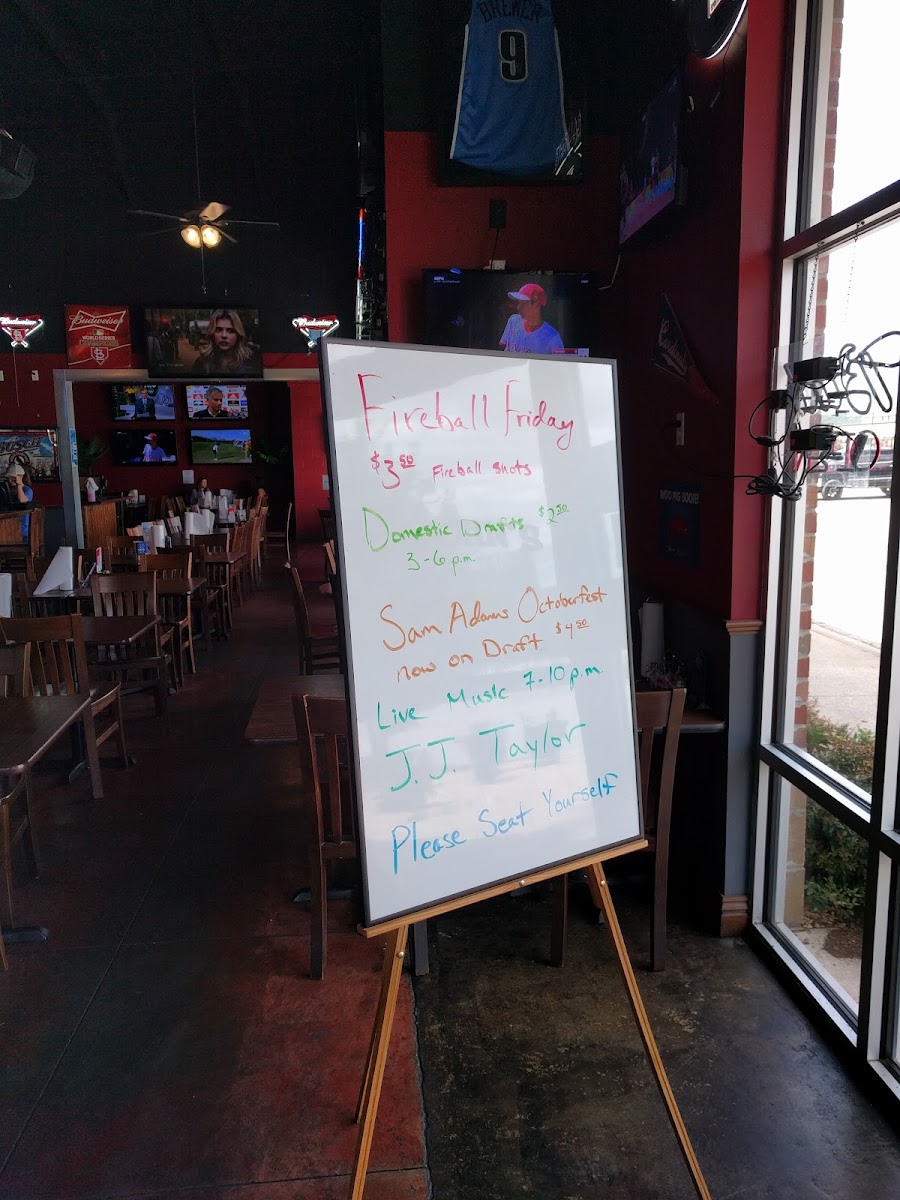 BREWER
9
Budweiser
Budweiser
WORLD SERIES
Budweiser
BUSCH
WOO PIG SOOIE!
Fireball Friday
$3.50 Fireball shots
Domestic Drafts $2.50
3-6 p.m.
Sam Adams Octoberfest
now on Draft $4.50
Live Music 7-10 p.m.
J.J. Taylor
Please Seat Yourself